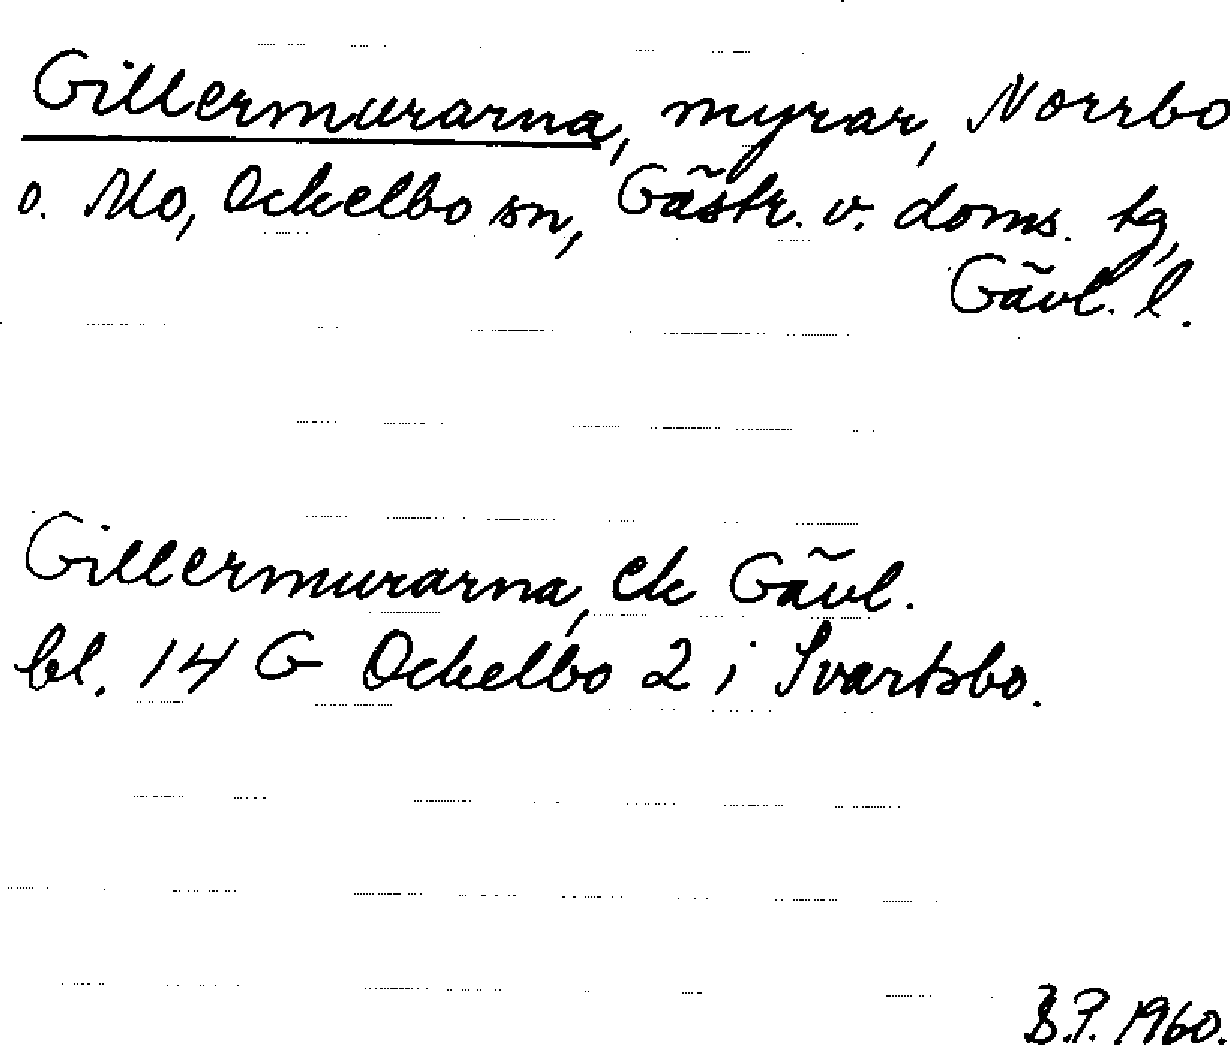 Gillermurarna, myrar, Norrbo
o. Mo, Ockelbo sn, Gästr. v. doms. tg,
Gävl. l.
Gillermurarna, Ek Gävl.
bl. 14 G Ockelbo 2 i Svartsbo.
B.P. 1960.